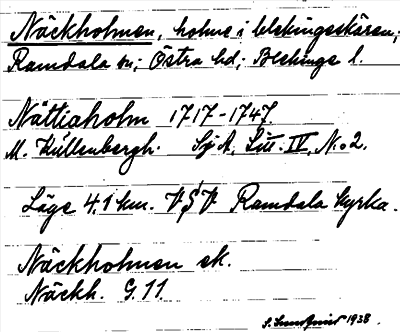 Näckholmen, holme i blekingsskären;
Ramdala sn; Östra hd; Blekinge l.
Nättiaholm 1717-1747.
M. Kullenbergh. Sj A, Litt. IV, No 2.
Läge 4,1 km. VSV Ramdala kyrka.
Näckholmen ek.
Näckh. G. 11
1938